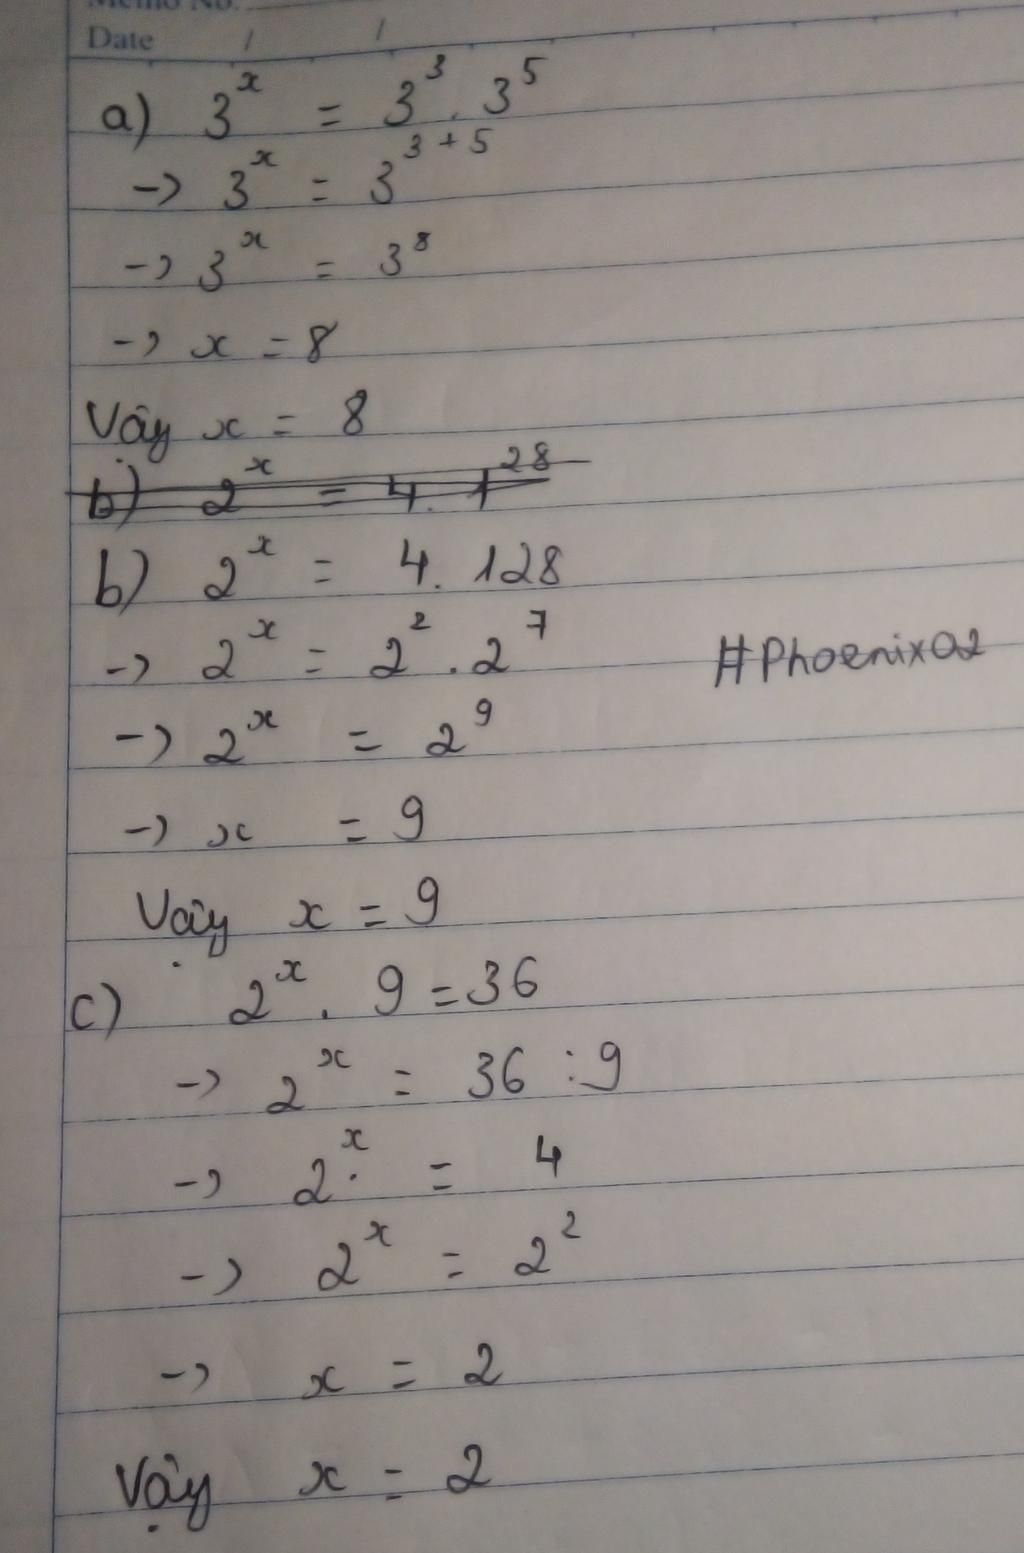 Memo No.
Date / /
a) 3^x = 3^3 . 3^5
-> 3^x = 3^{3+5}
-> 3^x = 3^8
-> x = 8
Vậy x = 8
b) 2^x = 4. 1^{28}
b) 2^x = 4. 128
-> 2^x = 2^2 . 2^7
#Phoenix02
-> 2^x = 2^9
-> x = 9
Vậy x = 9
c) 2^x . 9 = 36
-> 2^x = 36 : 9
-> 2^x = 4
-> 2^x = 2^2
-> x = 2
Vậy x = 2